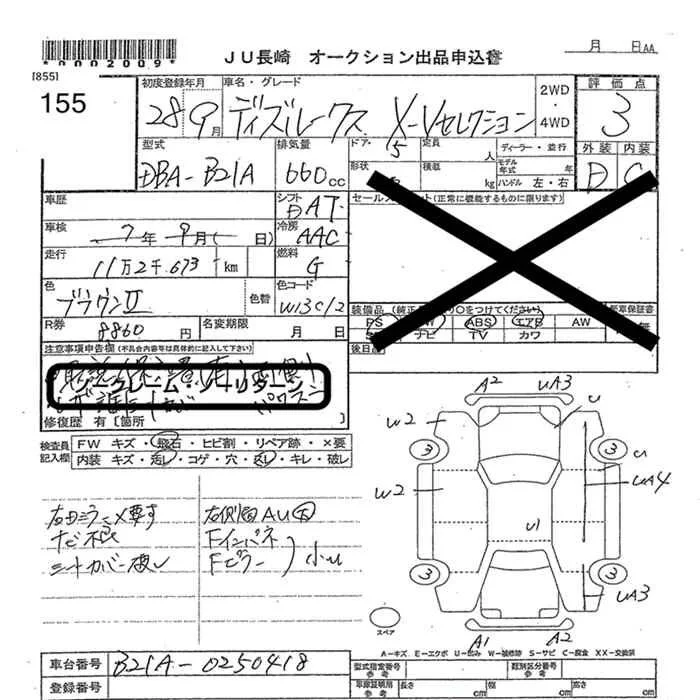 *0002009*
JU長崎 オークション出品申込書
月 日AA
[855]
155
初度登録年月 車名・グレード 2WD ・ 4WD 評価点
28 9月 ディズルークス X-Vセレクション 3
型式 排気量 ドア・ 定員 人 ディーラー・並行 外装 内装
DBA-B21A 660cc 5 形状 積載 kg モデル年式 年 ハンドル 左・右 D C
車歴 シフト DAT セールスポイント(正常に機能するものに限ります)
車検 7年 9月( 日) 冷房 AAC
走行 11万2千673 km 燃料 G
色 ブラウンII 色替 色コード W13C/2
装備品 (純正 ○をつけてください) 新車保証書
PS ABS エアB AW 無
ナビ TV カワ
R券 8860 円 名変期限 月 日
後日品
注意事項申告欄(不具合内容等は具体的に記入して下さい)
ノークレーム・ノーリターン
修復歴 有 [箇所 ]
検査員記入欄 FW キズ・飛石・ヒビ割・リペア跡・×要
内装 キズ・汚レ・コゲ・穴・スレ・キレ・破レ
A2 UA3
U
W2 3 3 U
W2 UA4
U1
3 3
UA3
A1 A2
スペア
右田ミラー×要す 右側面AU大
ナビ不良 Fインパネ
シートカバー破レ Fピラー 小U
A-キズ、E-エクボ U-凹み W-補修跡 S-サビ C-腐食 XX-交換済
車台番号 B21A-0250418 型式指定番号 参考 類別区分番号 参考
登録番号 車庫証明用 参考 長さ cm 幅 cm 高さ cm